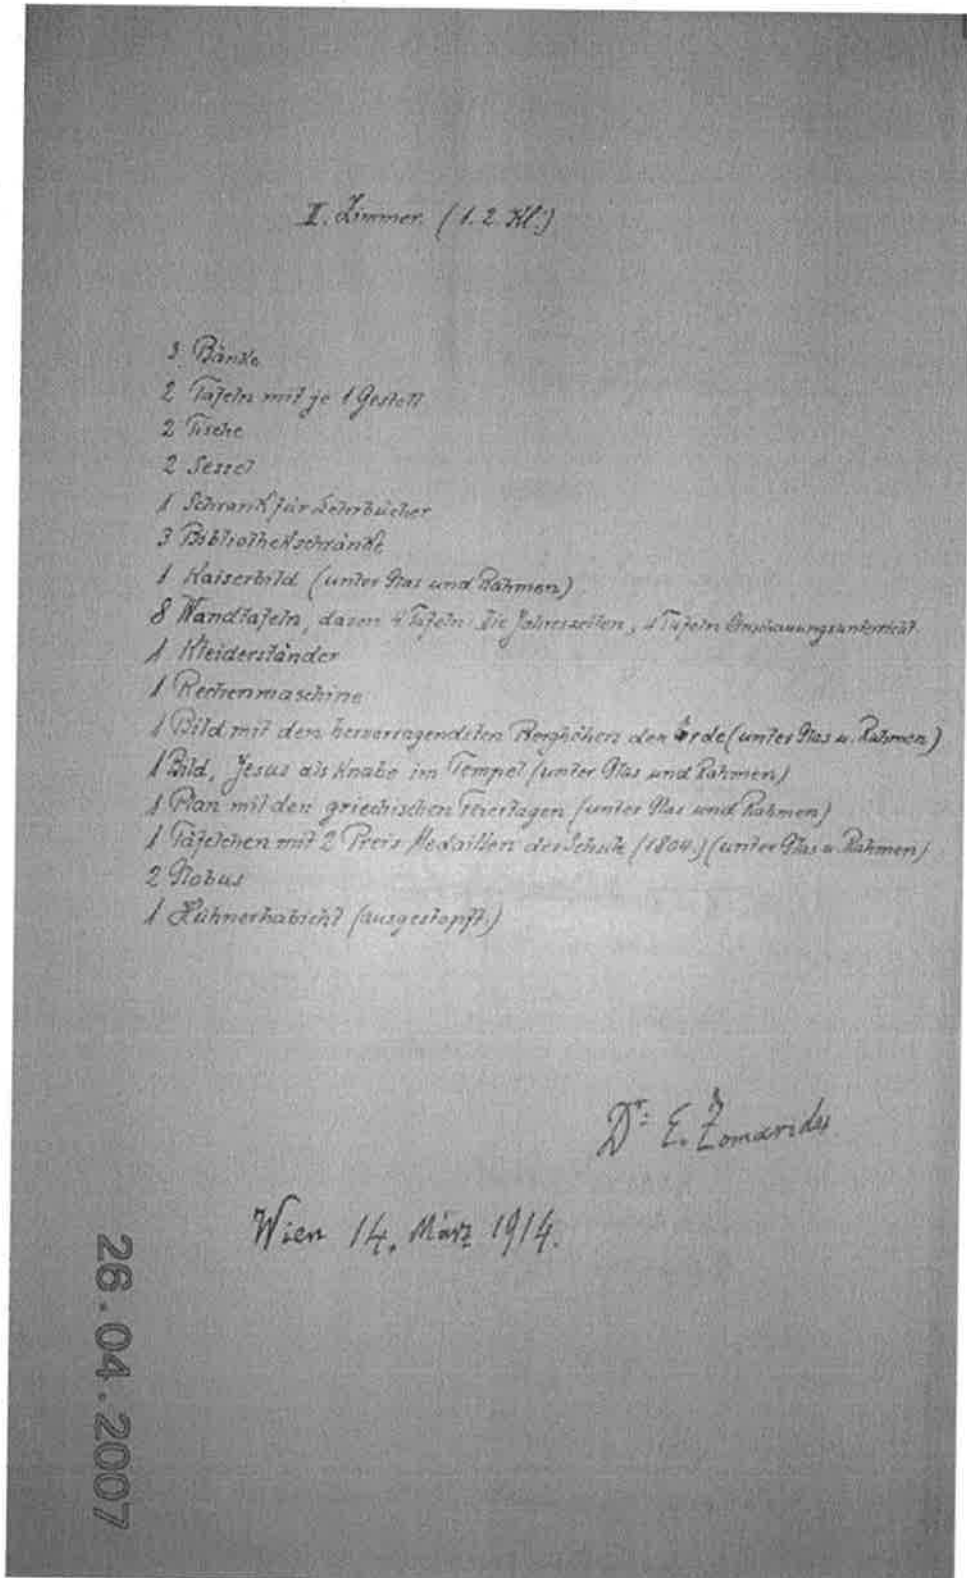 II. Zimmer. (1. 2. Kl.)
3 Bänke
2 Tafeln mit je 1 Gestell
2 Tische
2 Sessel
1 Schrank für Lehrbücher
3 Bibliothekschränke
1 Kaiserbild (unter Glas und Rahmen)
8 Wandtafeln, davon 4 Tafeln: Die Jahreszeiten, 4 Tafeln Anschauungsunterricht
1 Kleiderständer
1 Rechenmaschine
1 Bild mit den hervorragendsten Berghöhen der Erde (unter Glas u. Rahmen)
1 Bild, Jesus als Knabe im Tempel (unter Glas und Rahmen)
1 Plan mit den griechischen Feiertagen (unter Glas und Rahmen)
1 Täfelchen mit 2 Preis Medaillen der Schule (1804.) (unter Glas u. Rahmen)
2 Globus
1 Hühnerhabicht (ausgestopft.)
Dr. E. Zomarides
Wien 14. März 1914.
26.04.2007